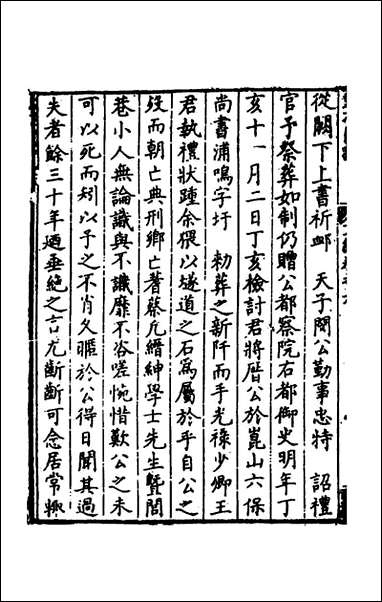 從闕下上書祈䘏　天子閔公勤事忠特　詔禮
官予祭葬如制仍贈公都察院右都御史明年丁
亥十一月二日丁亥檢討君將厝公於崑山六保
尚書浦鳴字圩　勑葬之新阡而手光祿少卿王
君執禮狀踵余猥以燧道之石爲屬於乎自公之
歿而朝亡典刑鄉亡蓍蔡凢縉紳學士先生曁閭
巷小人無論識與不識靡不咨嗟惋惜歎公之未
可以死而矧以予之不肖久暱於公得日聞其過
失者餘三十年廼垂絶之言尤斷斷可念居常輙